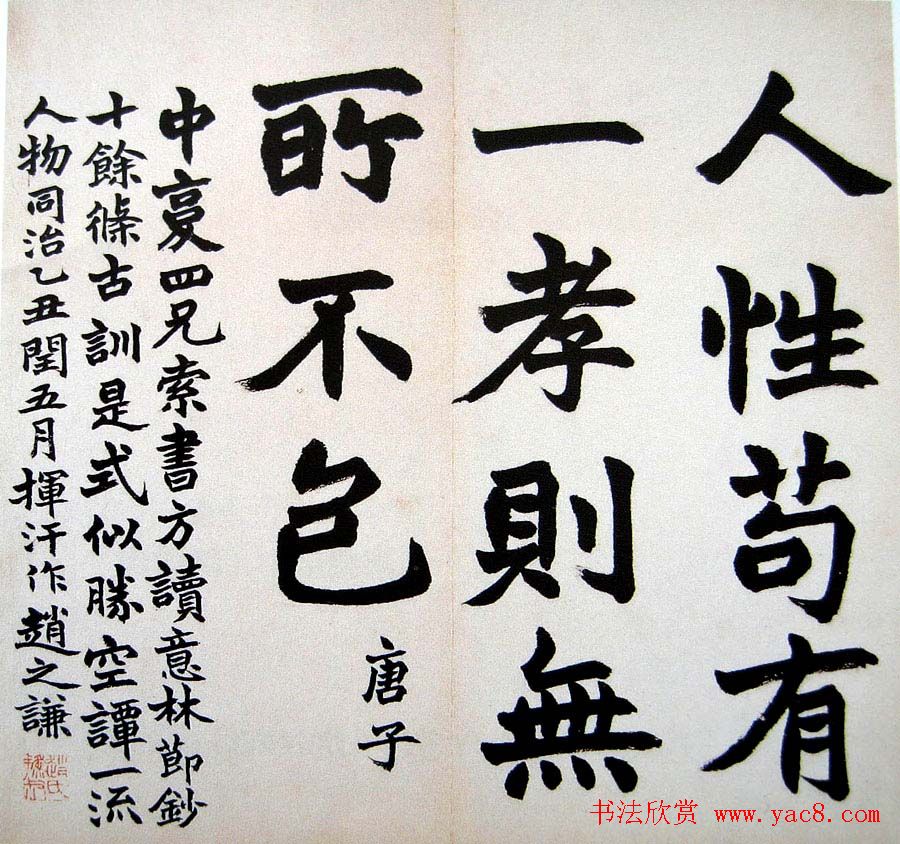 人性苟有
一孝則無
所不包
唐子
中𡕩四兄索書方讀意林節鈔
十餘條古訓是式似勝空譚一流
人物同治乙丑閏五月揮汗作趙之謙
书法欣赏 www.yac8.com